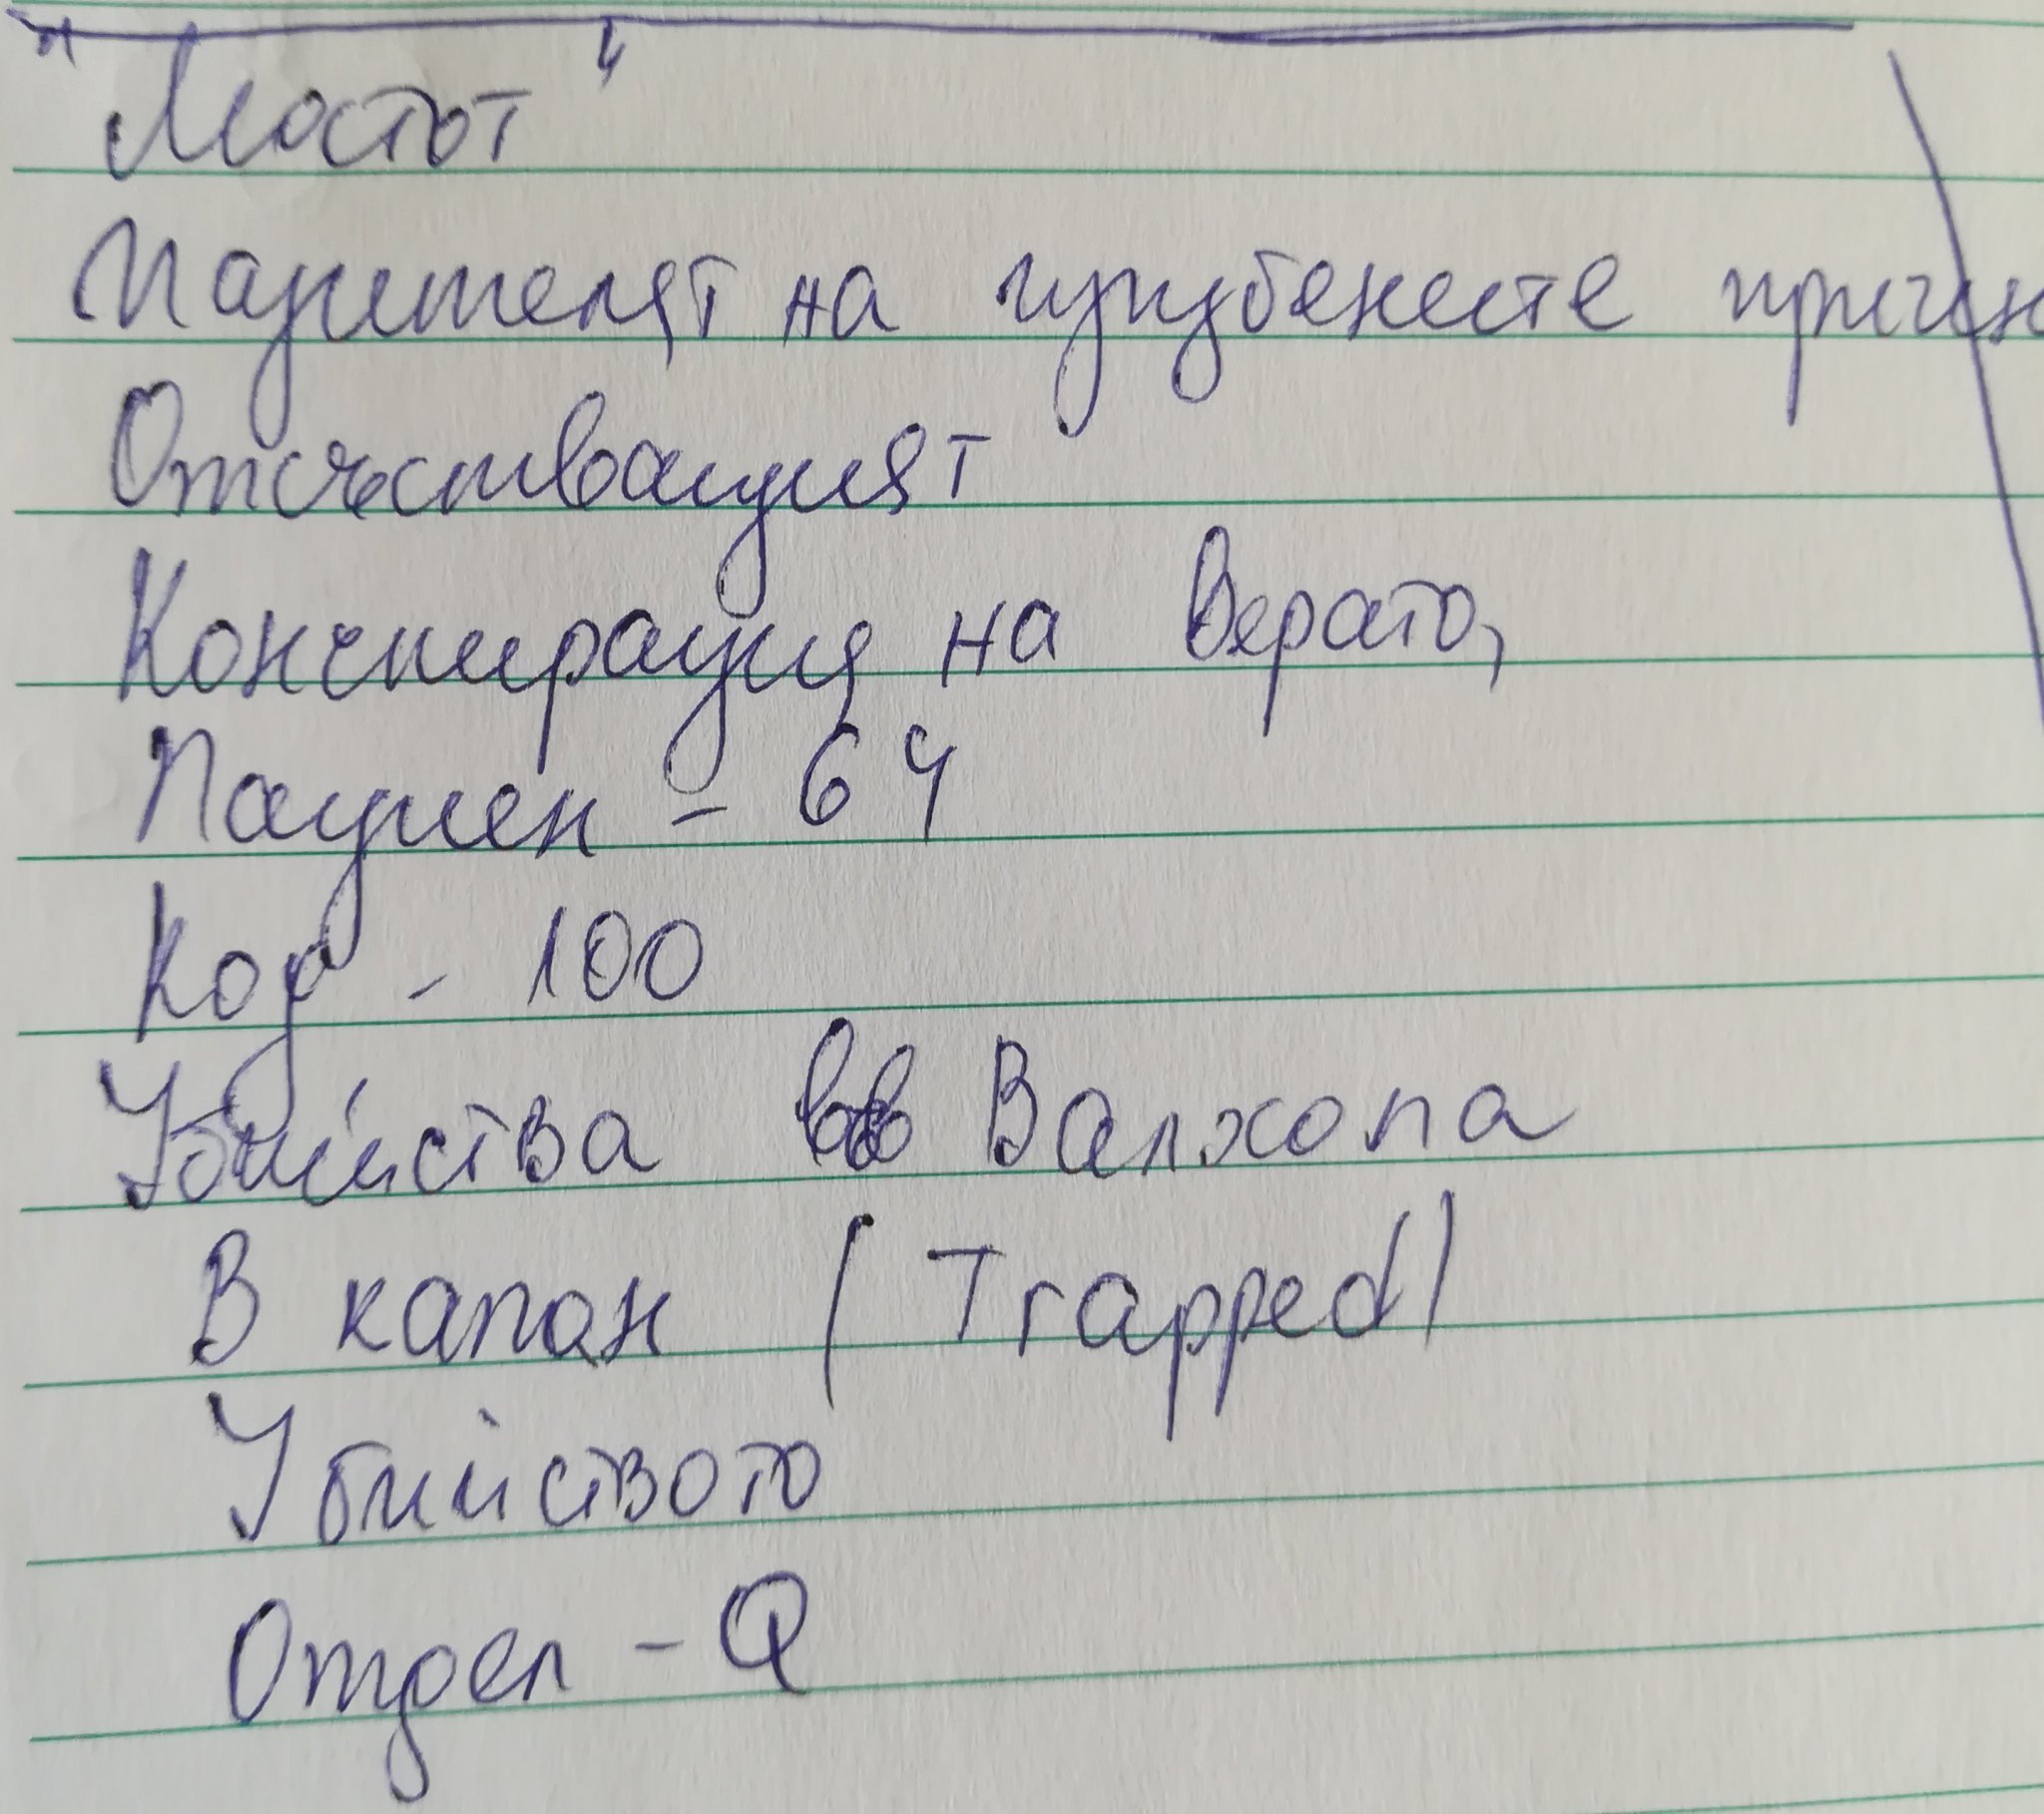 „Мостот“
Пазителят на изгубените причин
Отсъстващият
Конспирация на Вярата,
Пациен - 64
Код - 100
Убийства във Валхола
В капан (Trapped)
Убийството
Отдел - Q